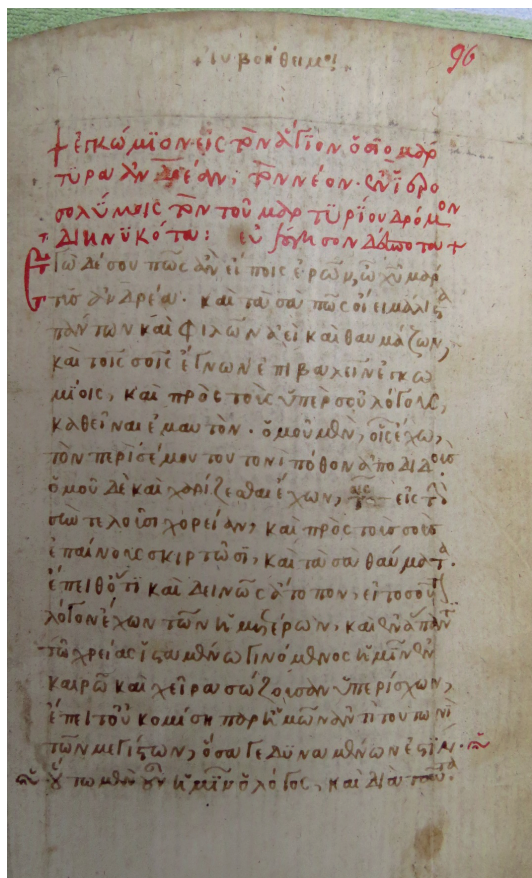 + ιυ βοηθει μοι
96
+ ἐγκώμϊον εἰς τὸν ἅγϊον ὁσιομάρ
τϋρα ἀνδρέαν, τὸν νέον. ἐν ϊερο
σολύμοις τὸν τοῦ μαρτϋρίου δρόμον
διηνϋκότα: εὐλόγησον δέσποτα +
πῶς ἄν εἴποις ἐρῶν, ὦ
ἀνδρέα. καὶ τὰ σὰ πῶς οἴει μάλιστα
πάντων καὶ φιλῶν ἀεὶ καὶ θαυμάζων,
καὶ τοῖς σοῖς ἔγνων ἐπιβαλεῖν ἐγκω
μίοις, καὶ πρὸς τοὺς ὑπὲρ σοῦ λόγους,
καθεῖναι ἐμαυτόν. ὁμοῦ μὲν, οἷς ἔχω,
τὸν περὶ σὲ μου τουτονὶ πόθον ἀποδιδοὺς
ὁμοῦ δὲ καὶ χαρίζεσθαι ἔχων, εἰς τὴν
σὴν τελοῦσι χορείαν, καὶ πρὸς τοὺς σοὺς
ἐπαίνους σκιρτῶσι, καὶ τὰ σὰ θαύματα.
ἔπειθ' ὅτι καὶ δεινῶς ἄτοπον, εἰ τοσοῦτον
λόγον ἔχων τῶν ἡμετέρων, καὶ
χρείας ἡμῖν ἐν
καιρῶ καὶ χεῖρα σώζουσαν ὑπερίσχων,
ἔπειτ' οὐ κομίση παρ' ἡμῶν ἀντὶ τουτωνὶ
τῶν μεγίστων, ὅσα γε δϋναμένων ἐστὶ
οὕτω μὲν οὖν ἡμῖν ὁ λόγος, καὶ διὰ ταῦτα